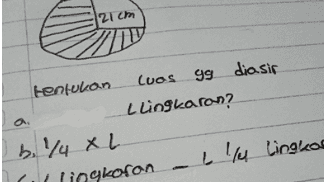 21 cm
tentukan luas yg diasir
a. L Lingkaran?
b. 1/4 x L
L Lingkaran - L 1/4 Lingkar